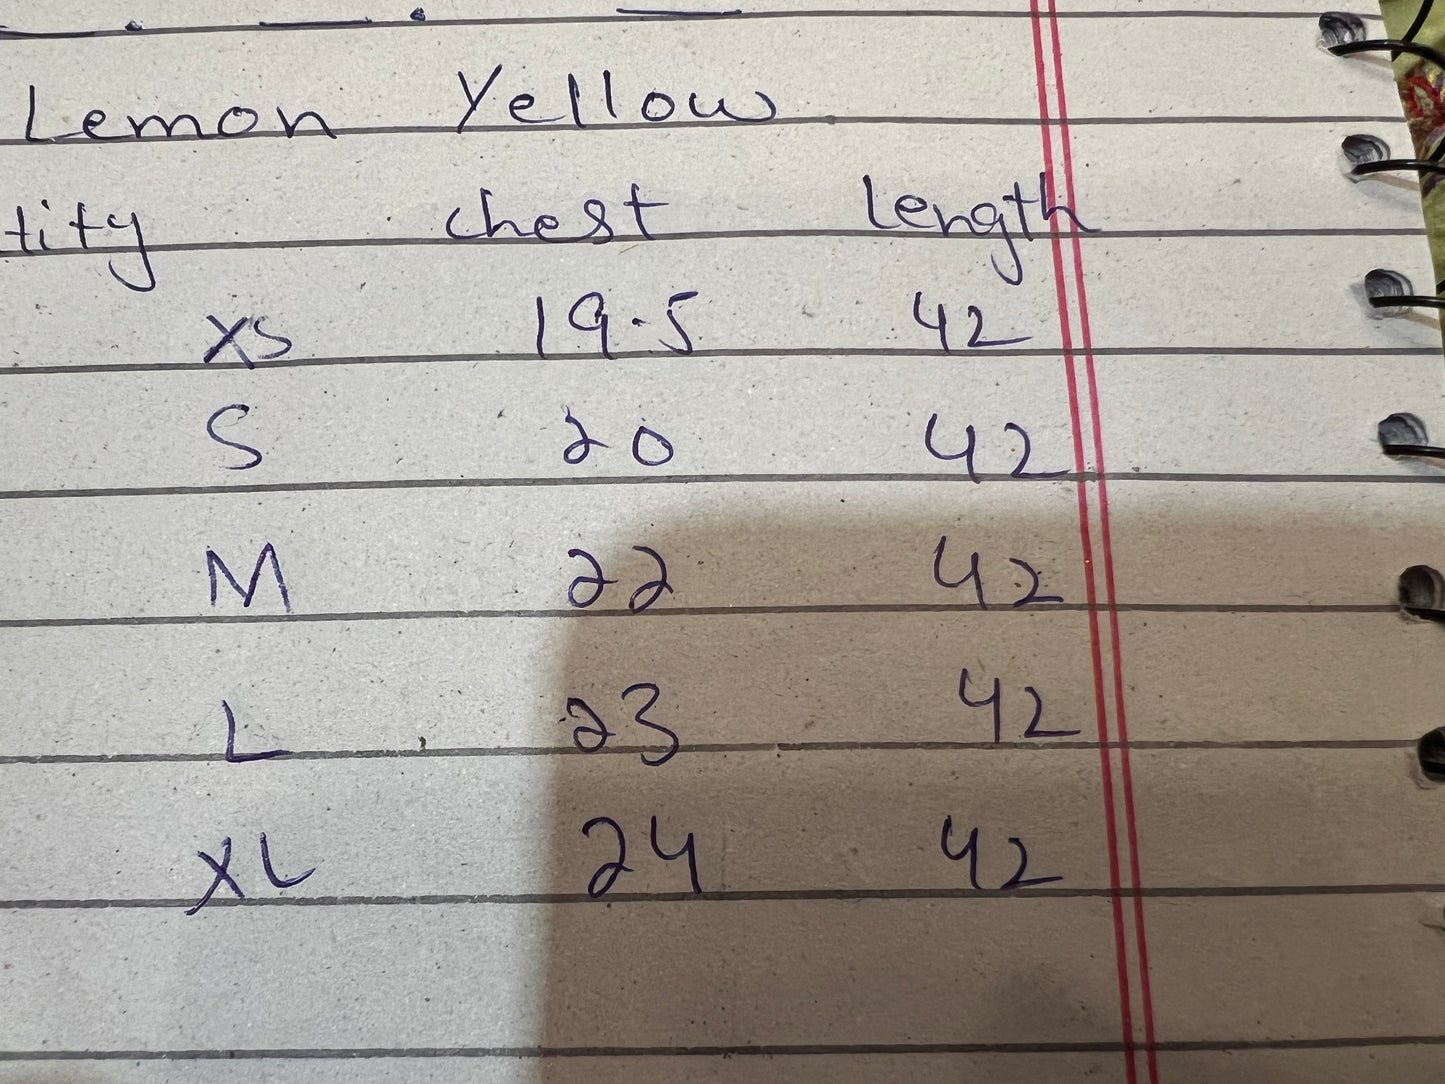 Lemon Yellow
tity chest length
XS 19.5 42
S 20 42
M 22 42
L 23 42
XL 24 42